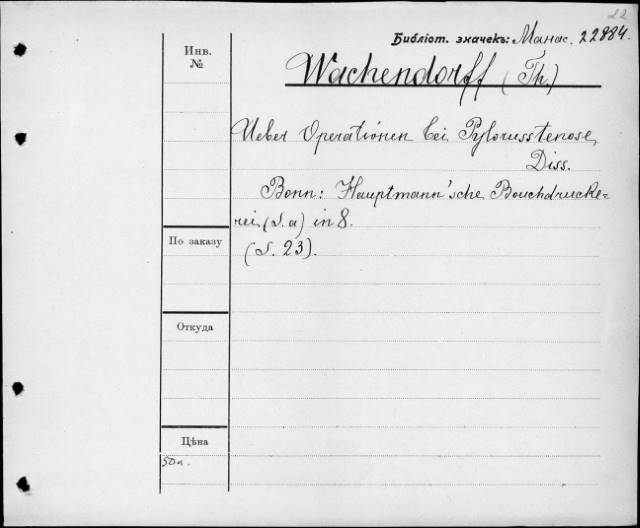 22
Библіот. значекъ: Манас. 22884.
Инв.
№
Wachendorff (Th.)
Ueber Operationen bei Pylorusstenose,
Diss.
Bonn: Hauptmann'sche Bouchdrucke-
rei, (S. a) in 8.
По заказу
(S. 23).
Откуда
Цѣна
50к.